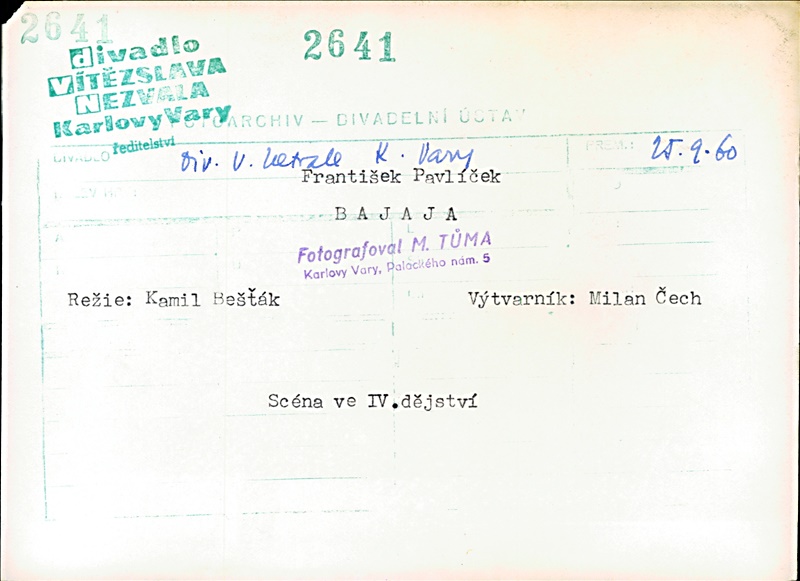 2641
2641
divadlo
VÍTĚZSLAVA
NEZVALA
Karlovy Vary
ředitelství
FOTOARCHIV — DIVADELNÍ ÚSTAV
DIVADLO
Div. V. Nezvala K. Vary
PREM.: 25.9.60
František Pavlíček
BAJAJA
Fotografoval M. TŮMA
Karlovy Vary, Palackého nám. 5
Režie: Kamil Bešťák
Výtvarník: Milan Čech
Scéna ve IV.dějství